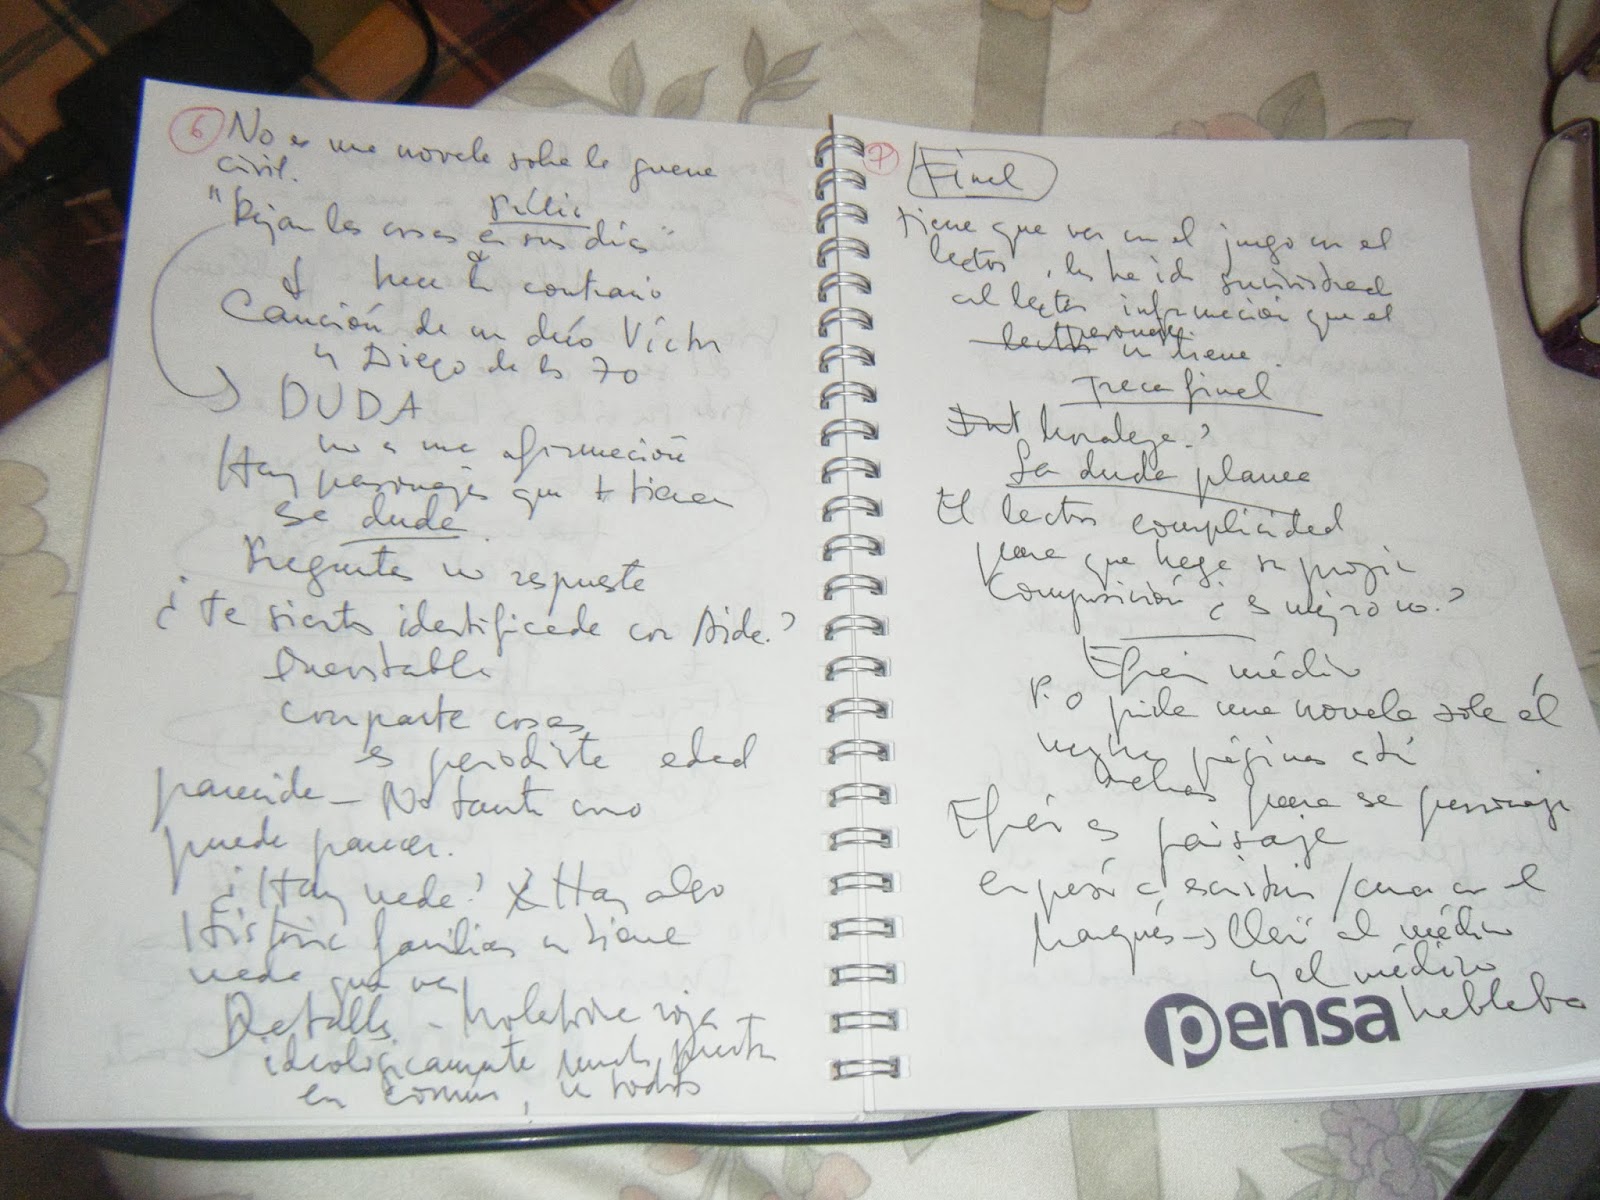 6 No es una novela sobre la guerra
civil.
"Dejar las cosas en sus días"
hace lo contrario
Canción de un deío Víctor
y Diego de los 70
DUDA
no es una afirmación
Hay personajes que + tienen
se duda
Preguntas no respuesta
¿Te sientes identificada con Aida?
Inevitable
comparte cosas
es periodista edad
parecida – No tanto como
puede parecer.
¿Hay nada? Hay algo
Historia familiar no tiene
nada que ver
Detalles – roja
ideológicamente muchos puntos
en común, no todos
7 Final
tiene que ver con el juego con el
lector, les he ido suministrando
al lector información que el
lector personaje no tiene
Treca final
moraleja?
La duda planea
El lector complicidad
para que haga su propia
composición ¿es mejor o no?
Efrén médico
P.O pide una novela sobre él
páginas está
para ser personaje
Efrén es paisaje
empezó a escribir / con el
Marqués → llevó al médico
y el médico
hablaba
pensa